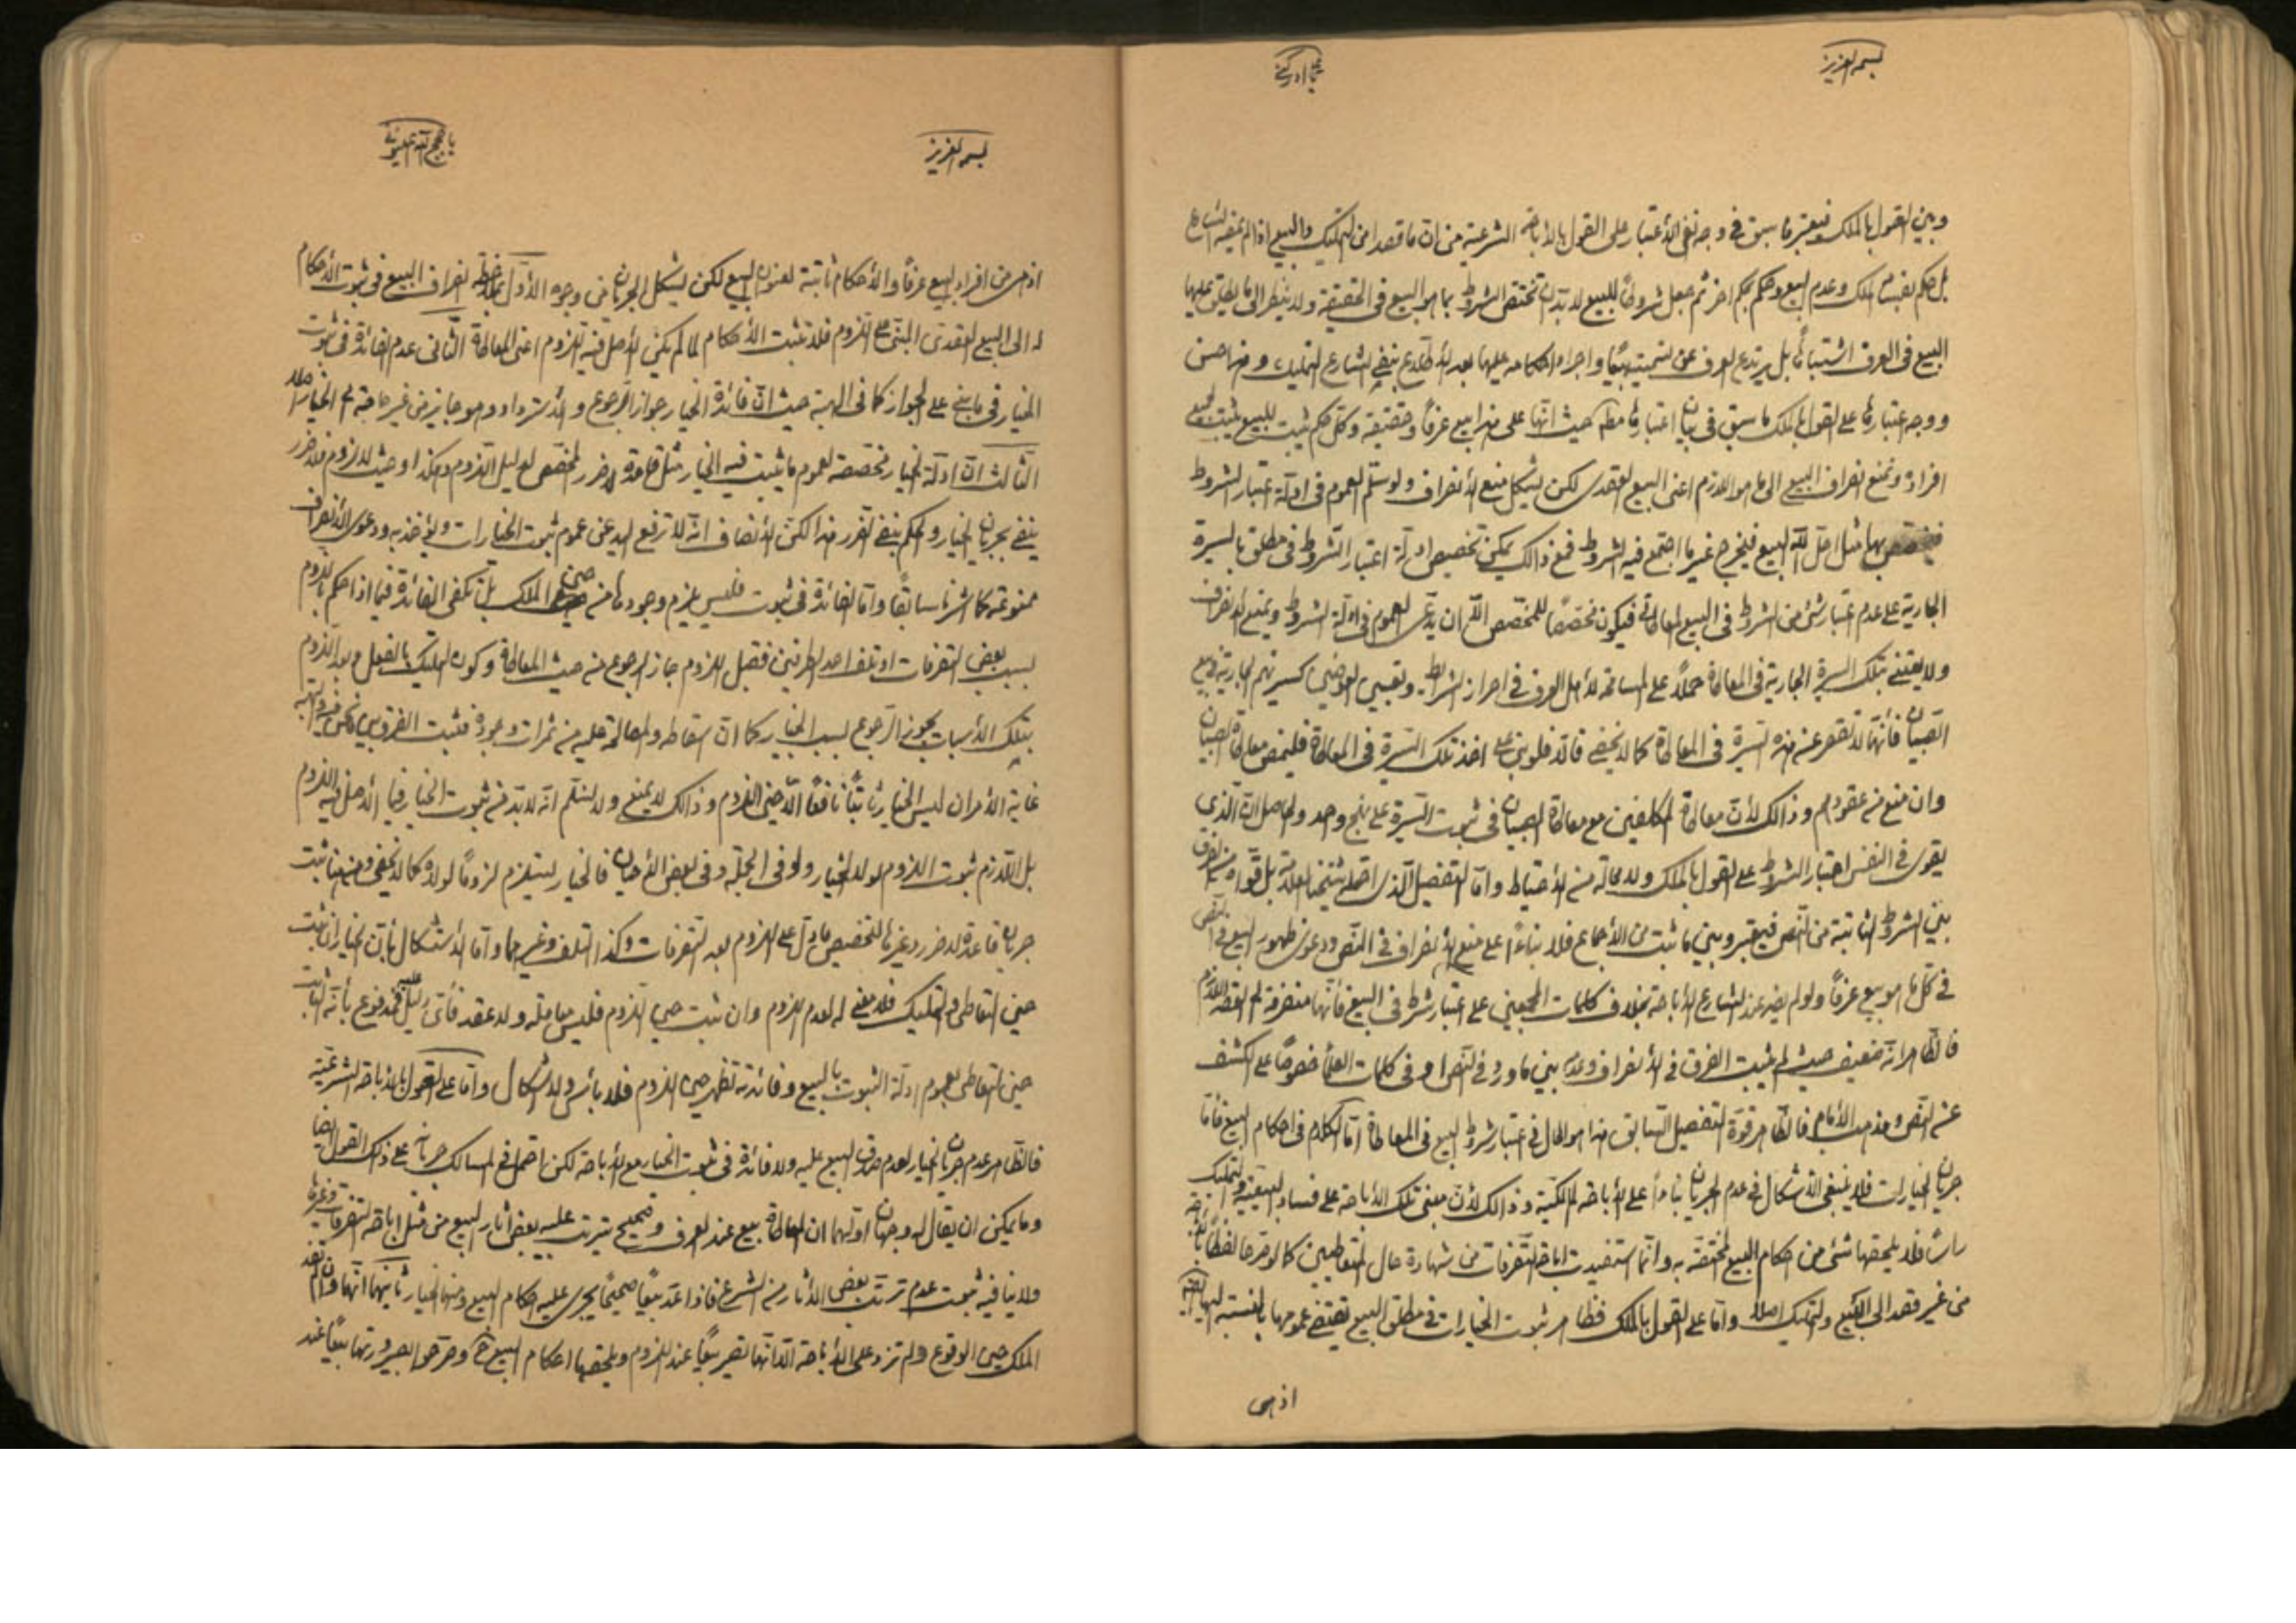 بسمه العزيز
وبين القول بالملك فيعتبر ما سبق في وجه نفي الأعتبار على القول بالأباحة الشرعية من ان ما قصد من التمليك والبيع اذا لم يمضه الشارع
بل حكم بفساد الملك وعدم البيع وحكم بحكم اخر ثم جعل شروطاً للبيع لا بد ان تختص الشروط بما هو البيع في الحقيقة ولا ينظر الى ما يطلق عليها
البيع في العرف اشتباهاً بل يرتدع العرف عن تسميته بيعاً واجراء احكامه عليها بعد الأطلاع بنفي الشارع التمليك وهذا حسن
ووجه اعتبارها على القول بالملك ما سبق في بيان اعتبارها مطلقا حيث انها على هذا بيع عرفاً وحقيقة وكل حكم يثبت للبيع يثبت لجميع
افراده ونمنع انصراف البيع الى ما هو اللازم اعني البيع العقدي لكن يشكل منع الأنصراف ولو سلم العموم في ادلة اعتبار الشروط
بها مثل احل الله البيع فيخرج غير ما اجتمع فيه الشروط فمع ذالك يمكن تخصيص ادلة اعتبار الشروط في مطلق بالسيرة
الجارية على عدم اعتبار شئ من الشروط في البيع المعاطاتي فيكون تخصيصاً للمخصص اللهم ان يدعى العموم في ادلة الشروط ويمنع الأنصراف
ولا يعتنى بتلك السيرة الجارية في المعاطاة حملاً على المسامحة لأهل العرف في احراز الشرائط وتعيين العوضين كسيرتهم الجارية في بيع
الصبيان فأنها لا تقصر عن هذه السيرة في المعاطاة كما لا يخفى قالا فلو بنى على اخذ تلك السيرة في المعاطاة فليمض معاطاة الصبيان
وان منع من عقودهم وذالك لأن معاطاة المكلفين مع معاطاة الصبيان في ثبوت السيرة على نهج واحد والحاصل ان الذي
يقوى في النفس اعتبار الشروط على القول بالملك ولا محالة من الأحتياط واما التفصيل الذي احتمله شيخنا العلامة بل قواه من الفرق
بين الشروط الثابتة من النص فيعتبر وبين ما ثبت من الأجماع فلا بناءً على منع الأنصراف في النص ودعوى ظهور البيع في النص
في كل ما هو بيع عرفاً ولو لم يفد عند الشارع الا الأباحة بخلاف كلمات المجمعين على اعتبار شرط في البيع فأنها منصرفة الى العقد اللازم
فالظاهر انه ضعيف حيث لم يثبت الفرق في الأنصراف وعدمه بين ما ورد في النص او في كلمات العلماء خصوصاً على الكشف
عن النص ومذهب الأمام فالظاهر قوة التفصيل السابق هذا هو الحال في اعتبار شروط البيع في المعاطاة اما الكلام في احكام البيع فأما
جريان الخيارات فلا ينبغي الأشكال في عدم الجريان بناءاً على الأباحة المالكية وذالك لأن مبنى تلك الأباحة على فساد البيعية والتمليك
راساً فلا يلحقها شئ من احكام البيع المختصة به وانما استفيدت اباحة التصرفات من شهادة حال المتعاطيين كما لو صرحا لفظاً
من غير قصد الى البيع والتمليك اصلاً واما على القول بالملك فظاهر ثبوت الخيارات في مطلق البيع تقتضي عمومها بالنسبة اليها
اذ هي
بسمه العزيز
اذ هي من افراد البيع عرفاً والأحكام ثابتة لعنوان البيع لكن يشكل الجريان من وجوه الأول ملاحظة انصراف البيع في ثبوت الأحكام
له الى البيع العقدي المبني على اللزوم فلا تثبت الأحكام لما لم يكن الأصل فيه اللزوم اعني المعاطاة الثاني عدم الفائدة في ثبوت
الخيار في ما بني على الجواز كما في الهبة حيث ان فائدة الخيار جواز الرجوع والأسترداد وهو جايز من غير حاجة الى الخيار اصلا
الثالث ان ادلة الخيار مخصصة لعموم ما يثبت فيه الخيار مثل قاعدة لا ضرر المخصص لدليل اللزوم وهكذا وحيث لا لزوم فلا ضرر
ينفى بجريان الخيار والحكم بنفي الضرر هذا لكن الأنصاف انه لا ترفع اليد عن عموم ثبوت الخيارات ويؤخذ به ودعوى الأنصراف
ممنوعة كما اشرنا سابقاً واما الفائدة في ثبوت فليس يلزم وجودها من حين الملك بل تكفى الفائدة فيما اذا حكم باللزوم
بسبب بعض التصرفات او تلف احد الطرفين فقبل اللزوم جاز الرجوع من حيث المعاطاة وكون التمليك بالفعل وبعد اللزوم
بتلك الأسباب يجوز الرجوع بسبب الخيار كما ان اسقاطه والمصالحة عليه من ثمرات وجوده
غاية الأمر ان ليس الخيار ثابتاً نافعاً الا حين اللزوم وذالك لا يمنع ولا نسلم انه لا بد من ثبوت الخيار فيما الأصل فيه اللزوم
بل اللازم ثبوت اللزوم لولا الخيار ولو في الجملة وفي بعض الأحيان فالخيار يستلزم لزوماً لولاه كما لا يخفى
جريان قاعدة لا ضرر وغيرها لتخصيص ما دل على اللزوم بعد التصرفات وكذا التلف وغيرهما واما الأستشكال بأن الخيار ان ثبت
حين التعاطي والتمليك فلا معنى له لعدم اللزوم وان ثبت حين اللزوم فليس معاملة ولا عقد فأي دليل عليه فمدفوع بأنه الثابت
حين التعاطي بعموم ادلة الثبوت بالبيع وفائدته تظهر حين اللزوم فلا بأس ولا اشكال واما على القول بالأباحة الشرعية
فالظاهر عدم جريان الخيار لعدم صدق البيع عليه ولا فائدة في ثبوت الخيار مع الأباحة لكن احتمل في المسالك جريانه على ذلك القول ايضا
وما يمكن ان يقال له وجهان اولهما ان المعاطاة بيع عند العرف وصحيح يترتب عليه بعض اثار البيع من مثل اباحة التصرفات وغيرها
ولا ينافيه ثبوت عدم ترتب بعض الأثار من الشرع فاذا عد بيعاً صحيحاً يجرى عليه احكام البيع ومنها الخيار ثانيهما انها وان لم تفد
الملك حين الوقوع ولم تزد على الأباحة الا انها تصير بيعاً عند اللزوم ويلحقها احكام البيع ح وصرحوا بصيرورتها بيعاً عند